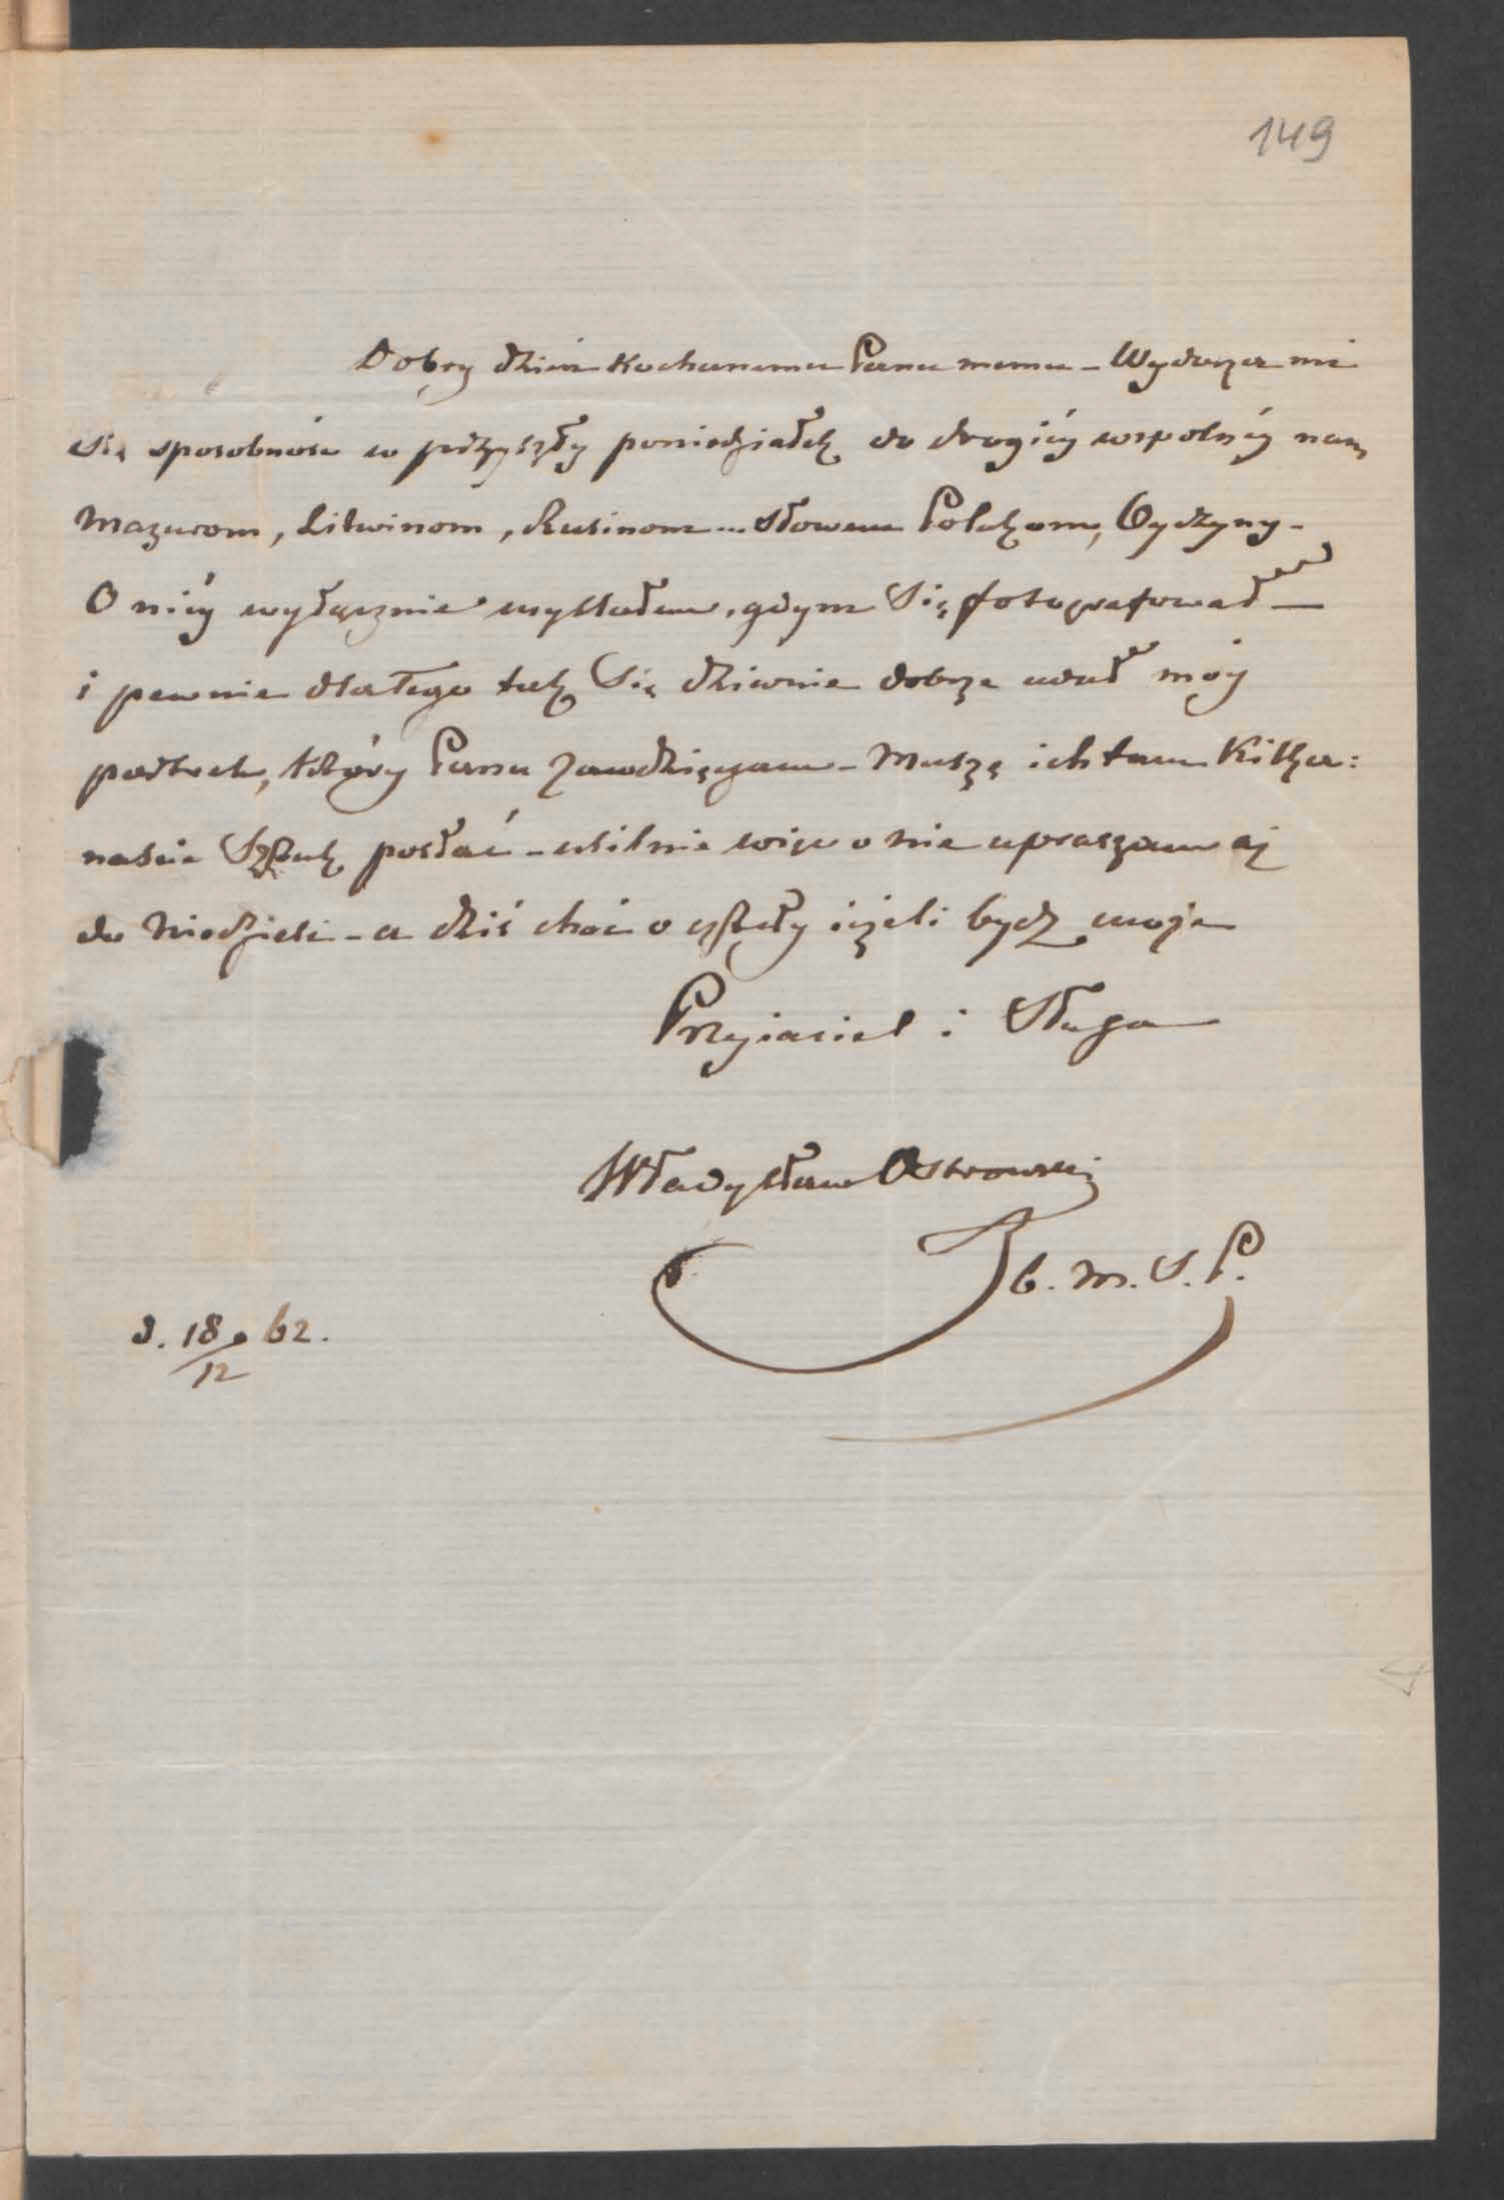 149
Dobry dzień Kochanemu Panu memu – Wydarza mi
się sposobność w przyszły poniedziałek do drogiéy wspolnéy nam
Mazurom, Litwinom, Rusinom... słowem Polakom, Oyczyzny –
O niéy wyłącznie myslałem, gdym się fotografował –
i pewnie dlatego tak się dziwnie dobrze udał móy
portret, który Panu zawdzięczam – Muszę ich tam kilka:
naście sztuk posłać – usilnie więc o nie upraszam aż
do Niedzieli – a dziś choć o cztéry ieżeli bydź może
Przyiaciel i Sługa
Władysław Ostrowski
b. M. S. P.
d. 18/12 62.